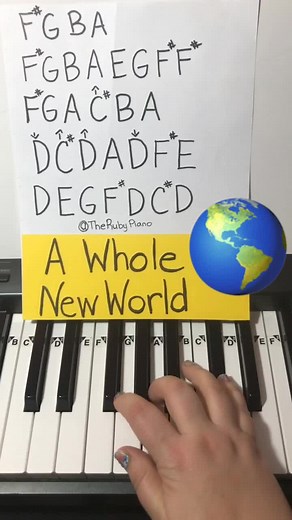 F# G B A
F# G B A E G F# F#
F# G A ^C# B A
ˇD ^C# ^D A ˇD F# E
D E G F# D C# D
@TheRubyPiano
A Whole
New World
B C D E F G A B C D E F